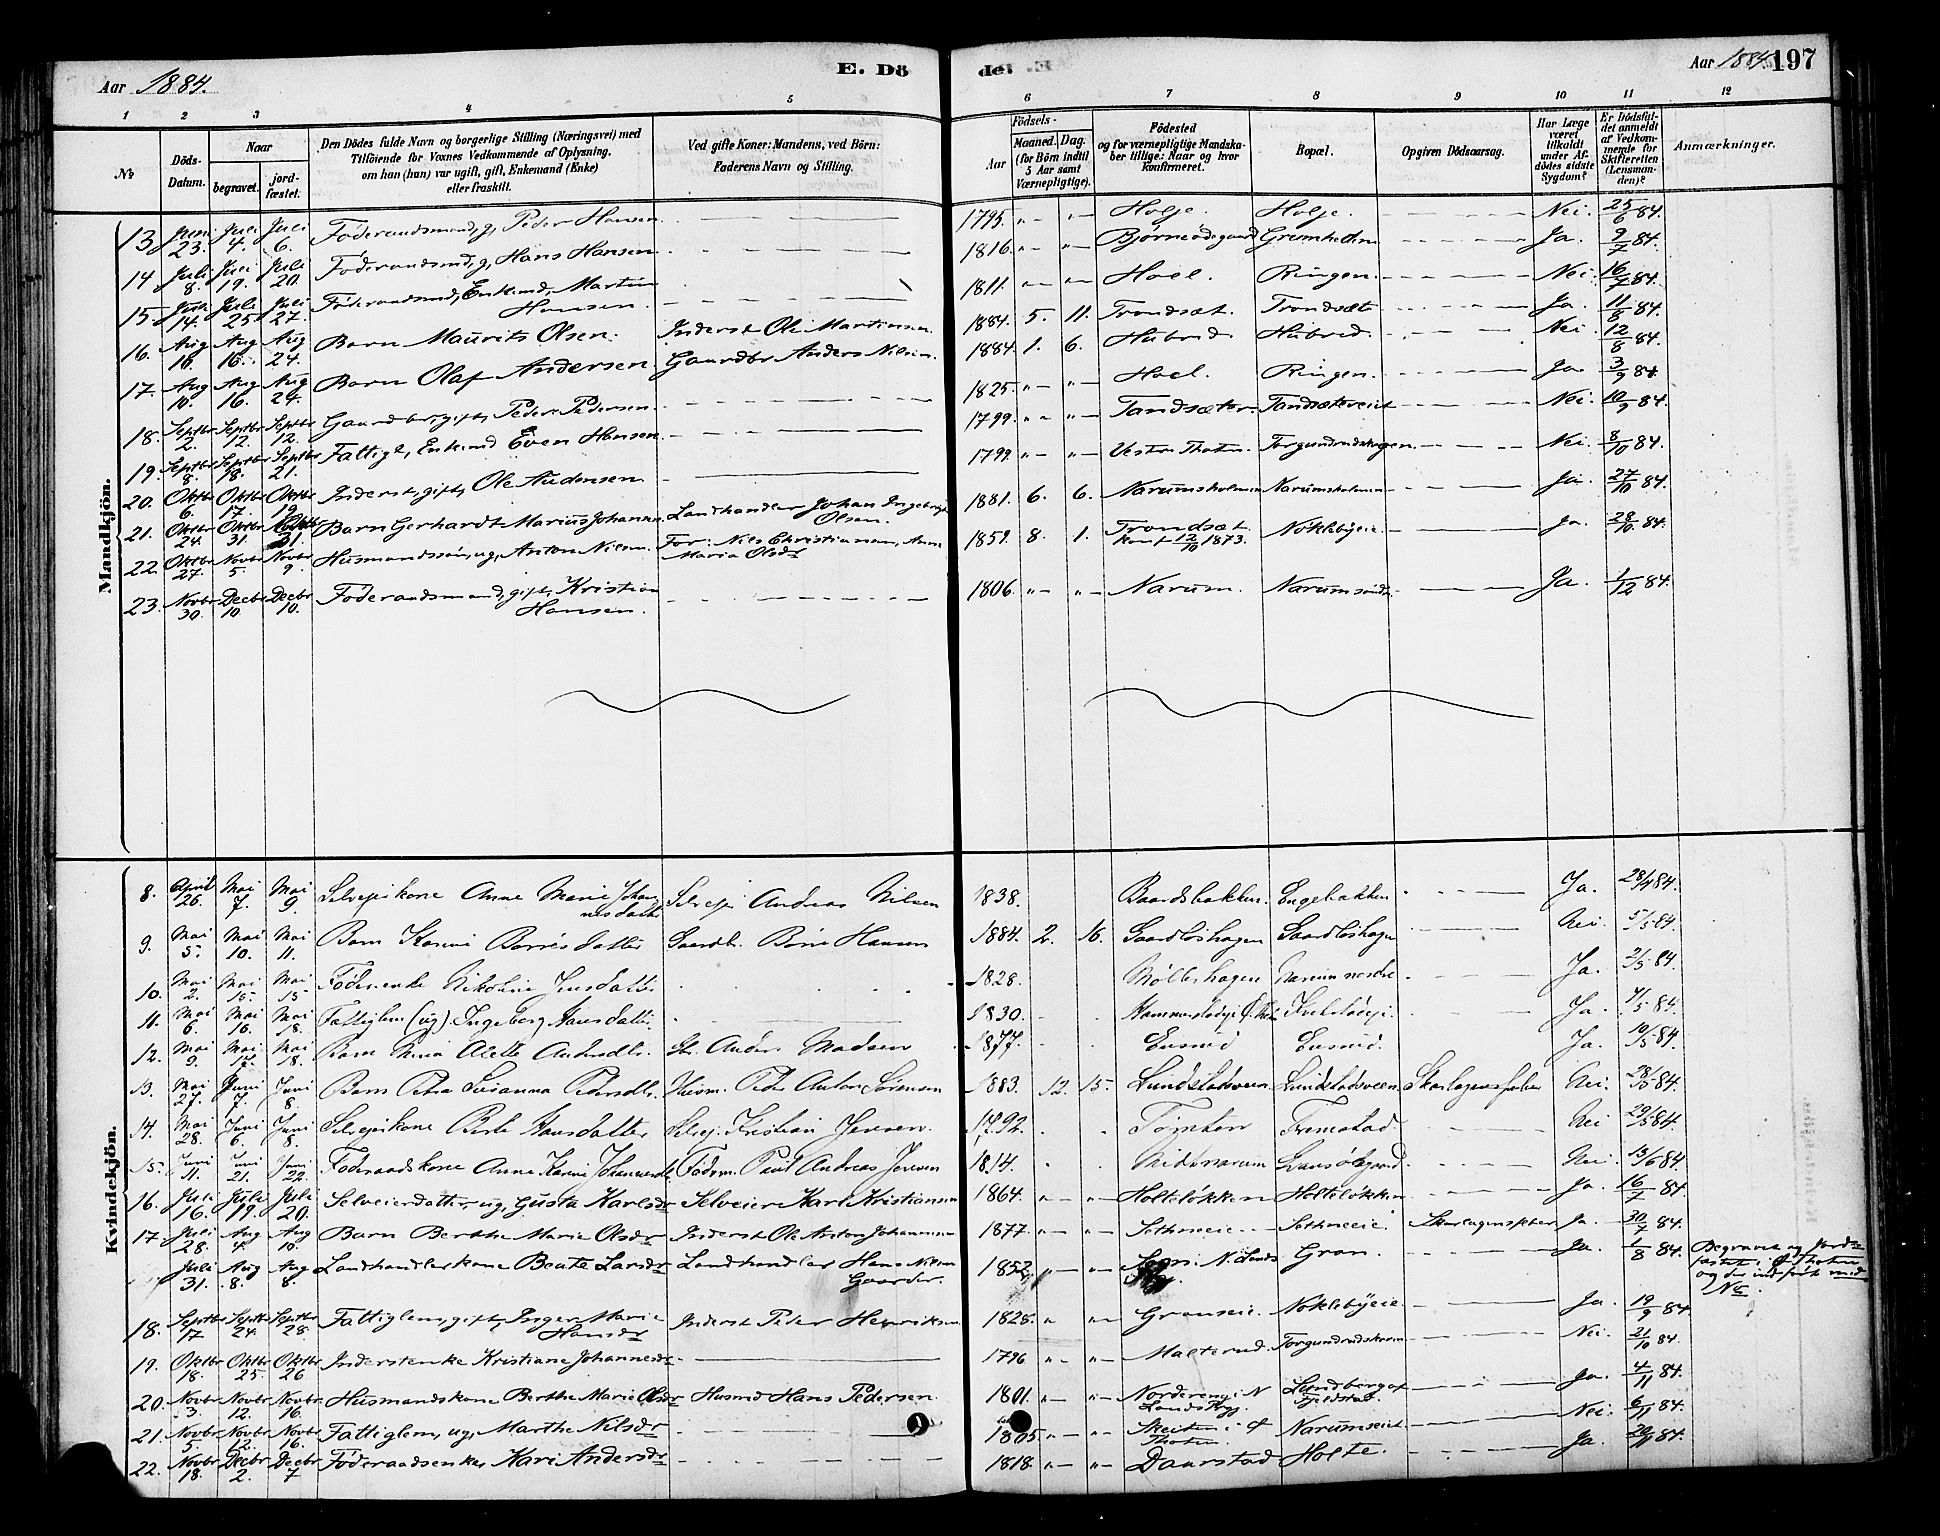 Aar 1884.
E. Dö
de.
Aar 1884. 197
1 2 3 4 5 6 7 8 9 10 11 12
No Döds-Datum. Naar begravet. jord-fæstet. Den Dödes fulde Navn og borgerlige Stilling (Næringsvei) med Tilföiende for Voxnes Vedkommende af Oplysning, om han (hun) var ugift, gift, Enkemand (Enke) eller fraskilt. Ved gifte Koner: Mandens, ved Börn: Faderens Navn og Stilling. Födsels- Aar Maaned. Dag. (for Börn indtil 5 Aar samt Værnepligtige). Födested og for værnepligtige Mandskaber tillige: Naar og hvor konfirmeret. Bopæl. Opgiven Dödsaarsag. Har Læge været tilkaldt under Afdödes sidste Sygdom? Er Dödsfaldet anmeldt af Vedkommende for Skifteretten (Lensmanden)? Anmærkninger.
Mandkjön.
13 Juni 23. Juli 4. Juli 6. Föderaadsmand, g, Peder Hansen — 1795. " " Holje. Holje. — Nei. 25/6 84.
14 Juli 8. Juli 19. Juli 20. Föderaadsmd, g, Hans Hansen — 1816. " " Bjørneödegaard Grimholm — Ja. 9/7 84.
15. Juli 14. Juli 25 Juli 27. Föderaadsmd, Enkemd, Martin Hansen. — 1811. " " Hoel. Ringen. — Nei. 16/7 84.
16. Aug 10. Aug 16. Aug 24. Barn Maurits Olsen. Inderst Ole Martinsen 1884. 5. 11. Trondsæt. Trondsæt — Ja. 11/8 84.
17. Aug 10. Aug 16. Aug 24. Barn Olaf Andersen. Gaardbr Anders Nilsen. 1884. 1. 6. Hubred. Hubred. — Nei. 12/8 84.
18. Septbr 2. Septbr 12. Septbr 12. Gaardbr, gift, Peder Pedersen. — 1825. " " Hoel. Ringen. — Ja. 3/9 84.
19. Septbr 8. Septbr 18. Septbr 21. Fattigl, Enkemd Even Hansen — 1799. " " Tandsæter. Tandsætereiet — Nei. 10/9 84.
20. Oktbr 6. Oktbr 17. Oktbr 19. Inderst, gift, Ole Andersen — 1799. " " Vestre Thoten. Torgundrudskogen — Nei. 8/10 84.
21. Oktbr 24. Oktbr 31. Oktbr 31. Barn Gerhardt Marius Johansen. Landhandler Johan Ingebrigt Olsen. 1881. 6. 6. Narumsholmen Narumsholmen — Ja. 27/10 84.
22. Oktbr 27. Novbr 5. Novbr 9. Husmandssön, ug, Anton Nilsen. For: Nils Christiansen, Anne Maria Olsdr 1859. 8. 1. Trondsæt. Konf 12/10 1873. Nöklebyeie — Ja. 28/10 84.
23. Novbr 30. Decbr 10. Decbr 10. Föderaadsmand, gift, Kristian Hansen. — 1806. " " Narum. Narum söndr. — Ja. 1/12 84.
Kvindekjön.
8. April 26. Mai 7. Mai 9. Selveierkone Anne Marie Johannesdatter Selveier Andreas Nilsen 1838. Baardsbakken. Engebakken — Ja. 28/4 84.
9. Mai 5. Mai 10. Mai 11. Barn Karni Börresdatter Gaardb. Börre Hansen 1884. 2. 16. Gaardløshagen Gaardløshagen — Nei. 5/5 84.
10. Mai 2. Mai 15. Mai 15 Føderenke Nikoline Jensdatter. 1828. Møllerhagen Narum nordre — Ja. 2/5 84.
11. Mai 6. Mai 16. Mai 18. Fattiglem (ug) Ingeborg Hansdatter. — 1830. — Ja. 7/5 84.
12. Mai 9. Mai 17. Mai 18. Barn Alette Andersdtr. Anders Madsen 1877. Ensrud Ensrud. Ja. 10/5 84.
13. Mai 27. Juni 7. Juni 8. Barn Petra Susanna Pedersdtr. Husm. Peder Anton Sörensen 1883. 12. 15. Lundstadsveen Lundstadsveen Skarlagensfeber Nei. 28/5 84.
14. Mai 28. Juni 6. Juni 8. Selveierkone Berte Hansdatter Selvej. Kristian Jensen. 1792. Tömten Fremstad — Nei 29/5 84
15. Juni 11. Juni 21. Juni 22. Føderaadskone Anne Karni Johannesdtr Födm. Paul Andreas Jensen 1814. Midtnarum — Nei. 13/6 84.
16. Juli 16. Juli 19. Juli 20. Selveierdatter, ug, Gusta Karlsdr Selveier Karl Kristiansen 1864. " " Holteløkken Holteløkken — Ja. 16/7 84.
17. Juli 28. Aug 4. Aug 10. Barn Berthe Marie Olsdr Inderst Ole Anton Johannesen 1877. " " Sethneeie. Sethneeie. Skarlagensfeber Ja. 30/7 84.
Juli 31. Aug 8. Aug 8. Landhandlerkone Beate Larsdr Landhandler Hans Nilsen Gaarder. 1852. " " N. Lands Prgj. Gran. — Ja. 1/8 84. Begravet og jordfæstet i Ø. Thoten og der indført med No.
18. Septbr 17. Septbr 24. Septbr 28. Fattiglem, gift, Inger Marie Hansdr Inderst Peder Henriksen. 1828. " " Graneeie. Nöklebyeie — Ja. 19/9 84
19. Oktbr 18. Oktbr 25. Oktbr 26. Inderstenke Kristiane Johannesdr — 1796. " " Malterud. Torgundrudskroken — Nei. 21/10 84.
20. Novbr 3. Novbr 12. Novbr 16. Husmandskone Berthe Marie Olsdr Husmd Hans Pedersen. 1801. " " Nordereng i N Lands Prgj. Lundberg af Fjeldstad. — Ja. 4/11 84.
21. Novbr 5. Novbr 12. Novbr 16. Fattiglem, ug, Marthe Nilsdr — 1805. " " Skeiten i Ø Thoten. Narumseiet — Nei. 6/11 84.
22. Novbr 18. Decbr 2. Decbr 7 Föderaadsenke, Kari Andersdr — 1818. " " Daarstad Holte. — Ja. 20/11 84.